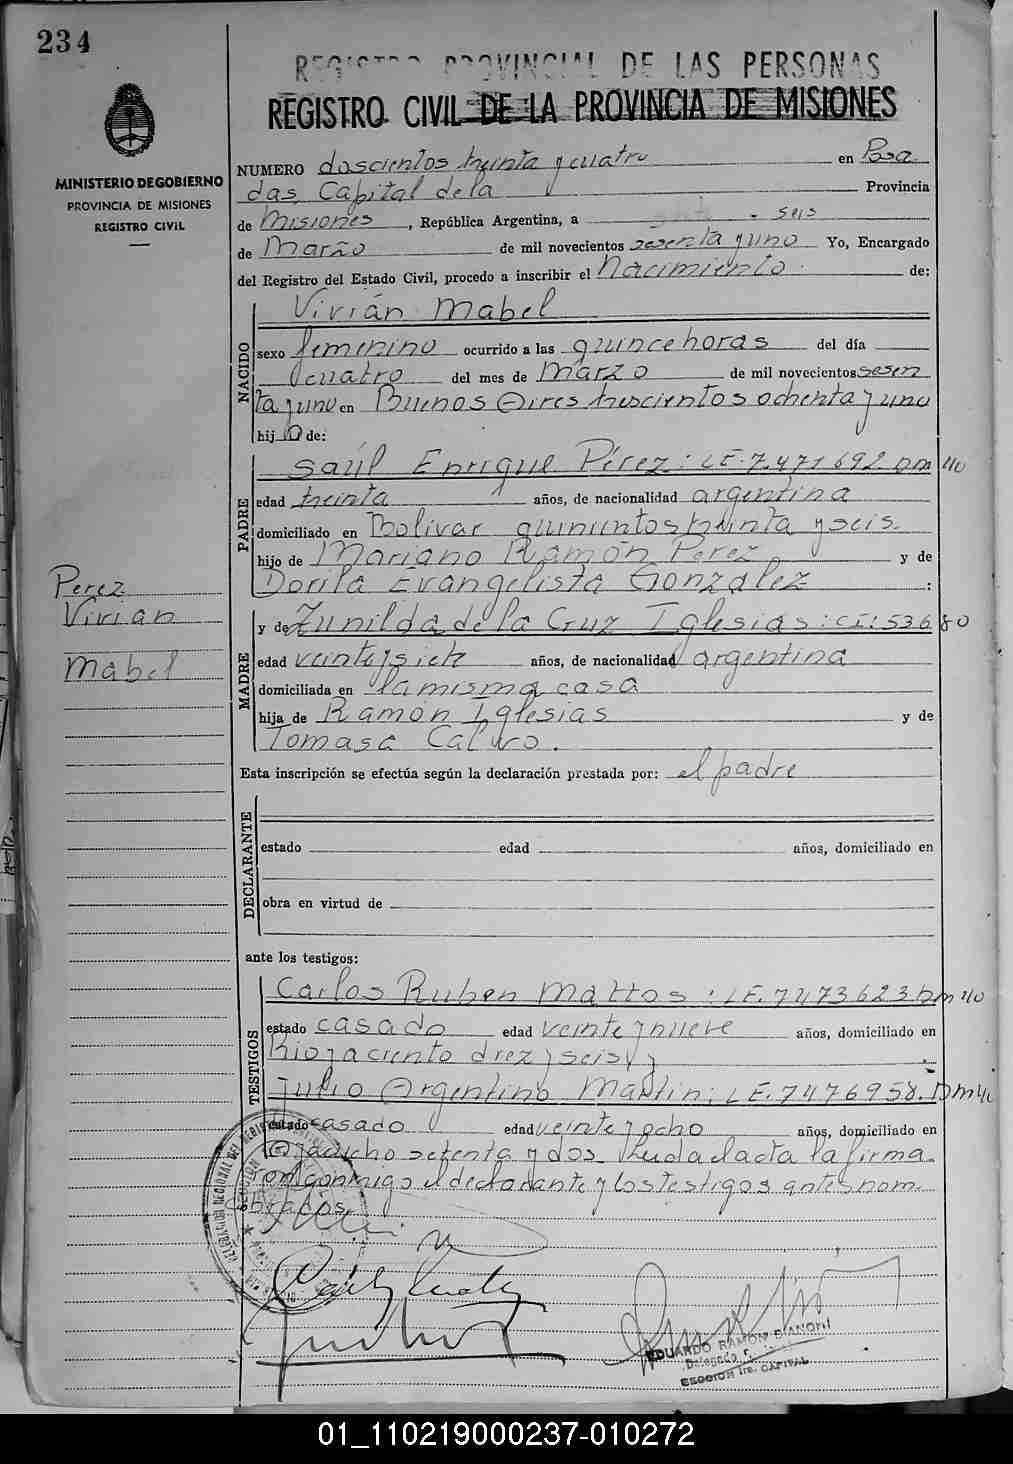 234
REGISTRO PROVINCIAL DE LAS PERSONAS
REGISTRO CIVIL DE LA PROVINCIA DE MISIONES
MINISTERIO DE GOBIERNO
PROVINCIA DE MISIONES
REGISTRO CIVIL
NUMERO doscientos treinta y cuatro en Posa
das, Capital de la Provincia
de Misiones, República Argentina, a seis
de Marzo de mil novecientos sesenta y uno Yo, Encargado
del Registro del Estado Civil, procedo a inscribir el Nacimiento de:
NACIDO
Vivián Mabel
sexo femenino ocurrido a las quince horas del día
cuatro del mes de Marzo de mil novecientos sesen
ta y uno en Buenos Aires trescientos ochenta y uno
hija de:
PADRE
Saúl Enrique Pérez: LE. 7.471.692. DM 40
edad treinta años, de nacionalidad argentina
domiciliado en Bolivar quinientos treinta y seis.
hijo de Mariano Ramón Perez y de
Dorila Evangelista Gonzalez :
Perez
Vivian
Mabel
MADRE
y de Zunilda de la Cruz Iglesias: CI: 53680
edad veintey siete años, de nacionalidad argentina
domiciliada en la misma casa
hija de Ramón Iglesias y de
Tomasa Calvo.
Esta inscripción se efectúa según la declaración prestada por: el padre
DECLARANTE
estado edad años, domiciliado en
obra en virtud de
ante los testigos:
TESTIGOS
Carlos Ruben Mattos: LE. 7473623 DM 40
estado casado edad veinte y nueve años, domiciliado en
Rioja ciento diez y seis y
Julio Argentino Martin: LE. 7476958. DM 40
estado casado edad veinte y ocho años, domiciliado en
Ayacucho setenta y dos. Leida el acta la firma
on conmigo el declarante y los testigos antes nom
brados.
EDUARDO RAMON BIANCHI
Delegado
SECCION 1ra. CAPITAL
01_110219000237-010272